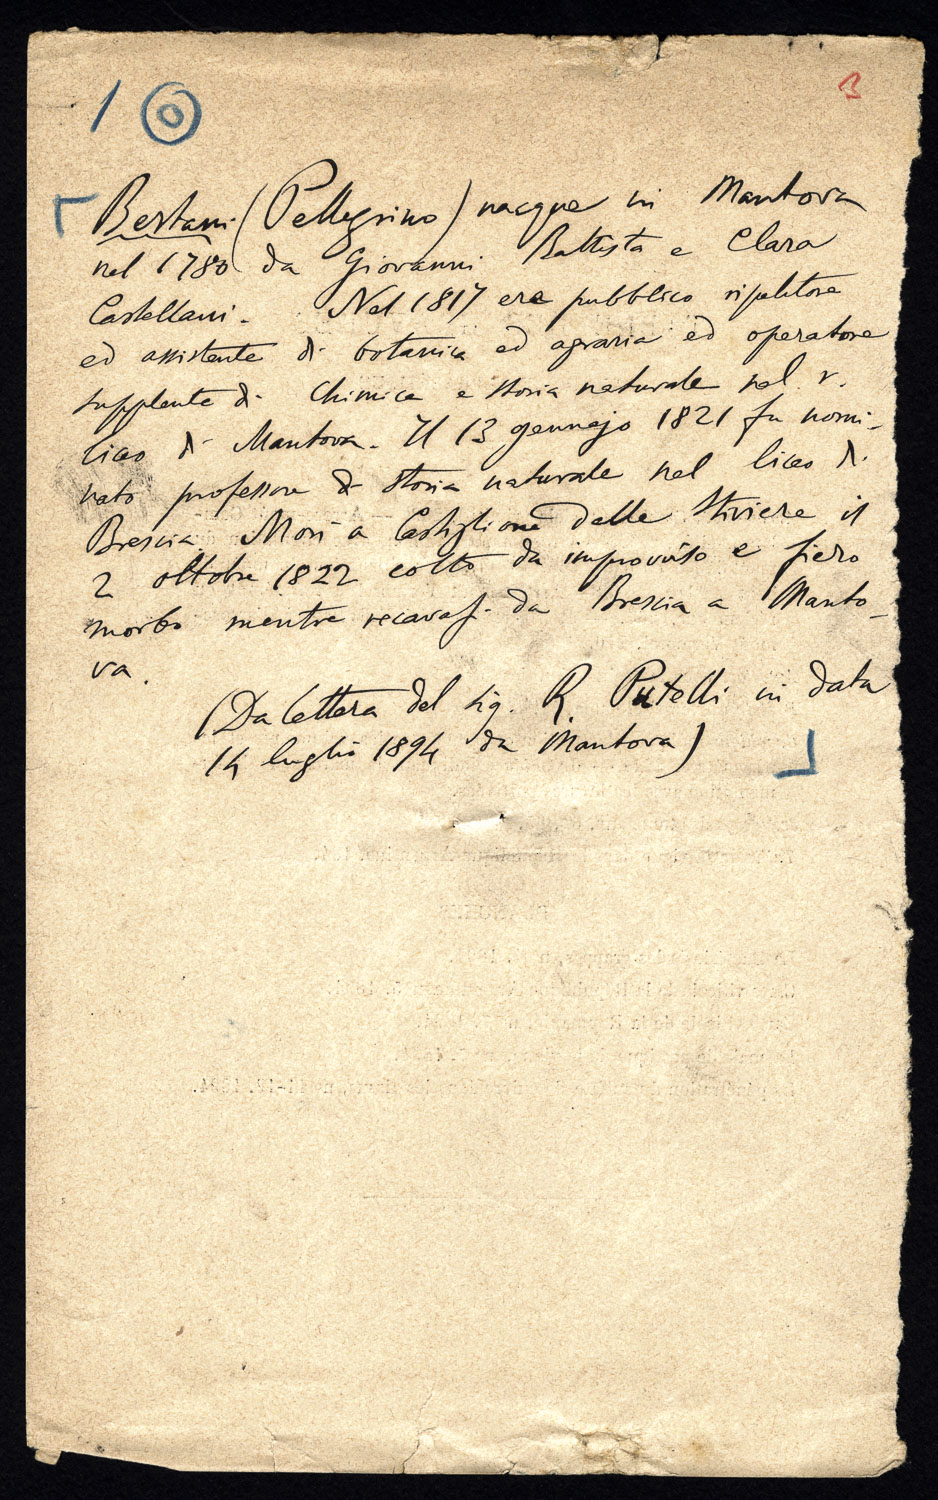 1 0
3
Bertani (Pellegrino) nacque in Mantova
nel 1780 da Giovanni Battista e Clara
Castellani. Nel 1817 era pubblico ripetitore
ed assistente di botanica ed agraria ed operatore
supplente di Chimica e storia naturale nel r.
liceo di Mantova. Il 13 gennajo 1821 fu nomi-
nato professore di storia naturale nel liceo di
Brescia. Morì a Castiglione delle Stiviere il
2 ottobre 1822 colto da improvviso e fiero
morbo mentre recavasi da Brescia a Manto-
va.
(Da lettera del sig. R. Putelli in data
14 luglio 1894 da Mantova)